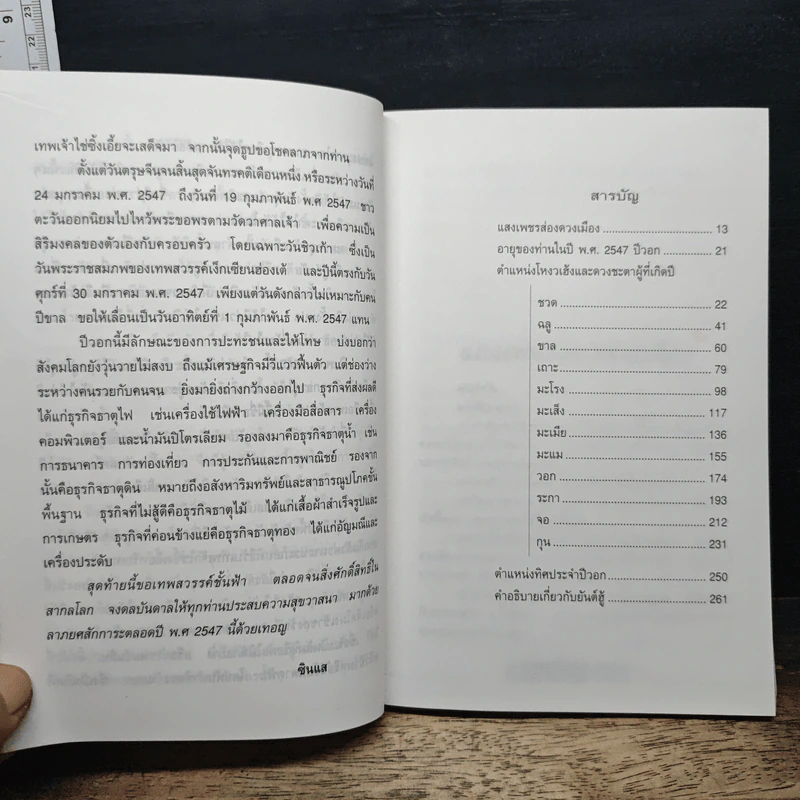 9
23
22
21
เทพเจ้าไช่ซิ้งเอี้ยจะเสด็จมา จากนั้นจุดธูปขอโชคลาภจากท่าน
ตั้งแต่วันตรุษจีนจนสิ้นสุดจันทรคติเดือนหนึ่ง หรือระหว่างวันที่
24 มกราคม พ.ศ. 2547 ถึงวันที่ 19 กุมภาพันธ์ พ.ศ 2547 ชาว
ตะวันออกนิยมไปไหว้พระขอพรตามวัดวาศาลเจ้า เพื่อความเป็น
สิริมงคลของตัวเองกับครอบครัว โดยเฉพาะวันชิวเก้า ซึ่งเป็น
วันพระราชสมภพของเทพสวรรค์เง็กเซียนฮ่องเต้ และปีนี้ตรงกับวัน
ศุกร์ที่ 30 มกราคม พ.ศ. 2547 เพียงแต่วันดังกล่าวไม่เหมาะกับคน
ปีขาล ขอให้เลื่อนเป็นวันอาทิตย์ที่ 1 กุมภาพันธ์ พ.ศ. 2547 แทน
ปีวอกนี้มีลักษณะของการปะทะชนและให้โทษ บ่งบอกว่า
สังคมโลกยังวุ่นวายไม่สงบ ถึงแม้เศรษฐกิจมีวี่แววฟื้นตัว แต่ช่องว่าง
ระหว่างคนรวยกับคนจน ยิ่งมายิ่งถ่างกว้างออกไป ธุรกิจที่ส่งผลดี
ได้แก่ธุรกิจธาตุไฟ เช่นเครื่องใช้ไฟฟ้า เครื่องมือสื่อสาร เครื่อง
คอมพิวเตอร์ และน้ำมันปิโตรเลียม รองลงมาคือธุรกิจธาตุน้ำ เช่น
การธนาคาร การท่องเที่ยว การประกันและการพาณิชย์ รองจาก
นั้นคือธุรกิจธาตุดิน หมายถึงอสังหาริมทรัพย์และสาธารณูปโภคขั้น
พื้นฐาน ธุรกิจที่ไม่สู้ดีคือธุรกิจธาตุไม้ ได้แก่เสื้อผ้าสำเร็จรูปและ
การเกษตร ธุรกิจที่ค่อนข้างแย่คือธุรกิจธาตุทอง ได้แก่อัญมณีและ
เครื่องประดับ
สุดท้ายนี้ขอเทพสวรรค์ชั้นฟ้า ตลอดจนสิ่งศักดิ์สิทธิ์ใน
สากลโลก จงดลบันดาลให้ทุกท่านประสบความสุขวาสนา มากด้วย
ลาภยศสักการะตลอดปี พ.ศ 2547 นี้ด้วยเทอญ
ซินแส
สารบัญ
แสงเพชรส่องดวงเมือง 13
อายุของท่านในปี พ.ศ. 2547 ปีวอก 21
ตำแหน่งโหงวเฮ้งและดวงชะตาผู้ที่เกิดปี
ชวด 22
ฉลู 41
ขาล 60
เถาะ 79
มะโรง 98
มะเส็ง 117
มะเมีย 136
มะแม 155
วอก 174
ระกา 193
จอ 212
กุน 231
ตำแหน่งทิศประจำปีวอก 250
คำอธิบายเกี่ยวกับยันต์ฮู้ 261